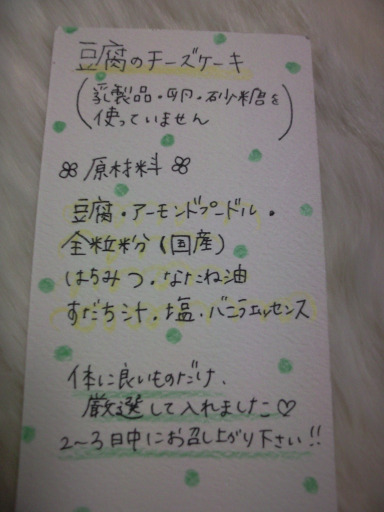 豆腐のチーズケーキ
(乳製品・卵・砂糖を
使っていません)
原材料
豆腐・アーモンドプードル・
全粒粉(国産)
はちみつ・なたね油
すだち汁・塩・バニラエッセンス
体に良いものだけ、
厳選して入れました♡
2〜3日中にお召し上がり下さい!!